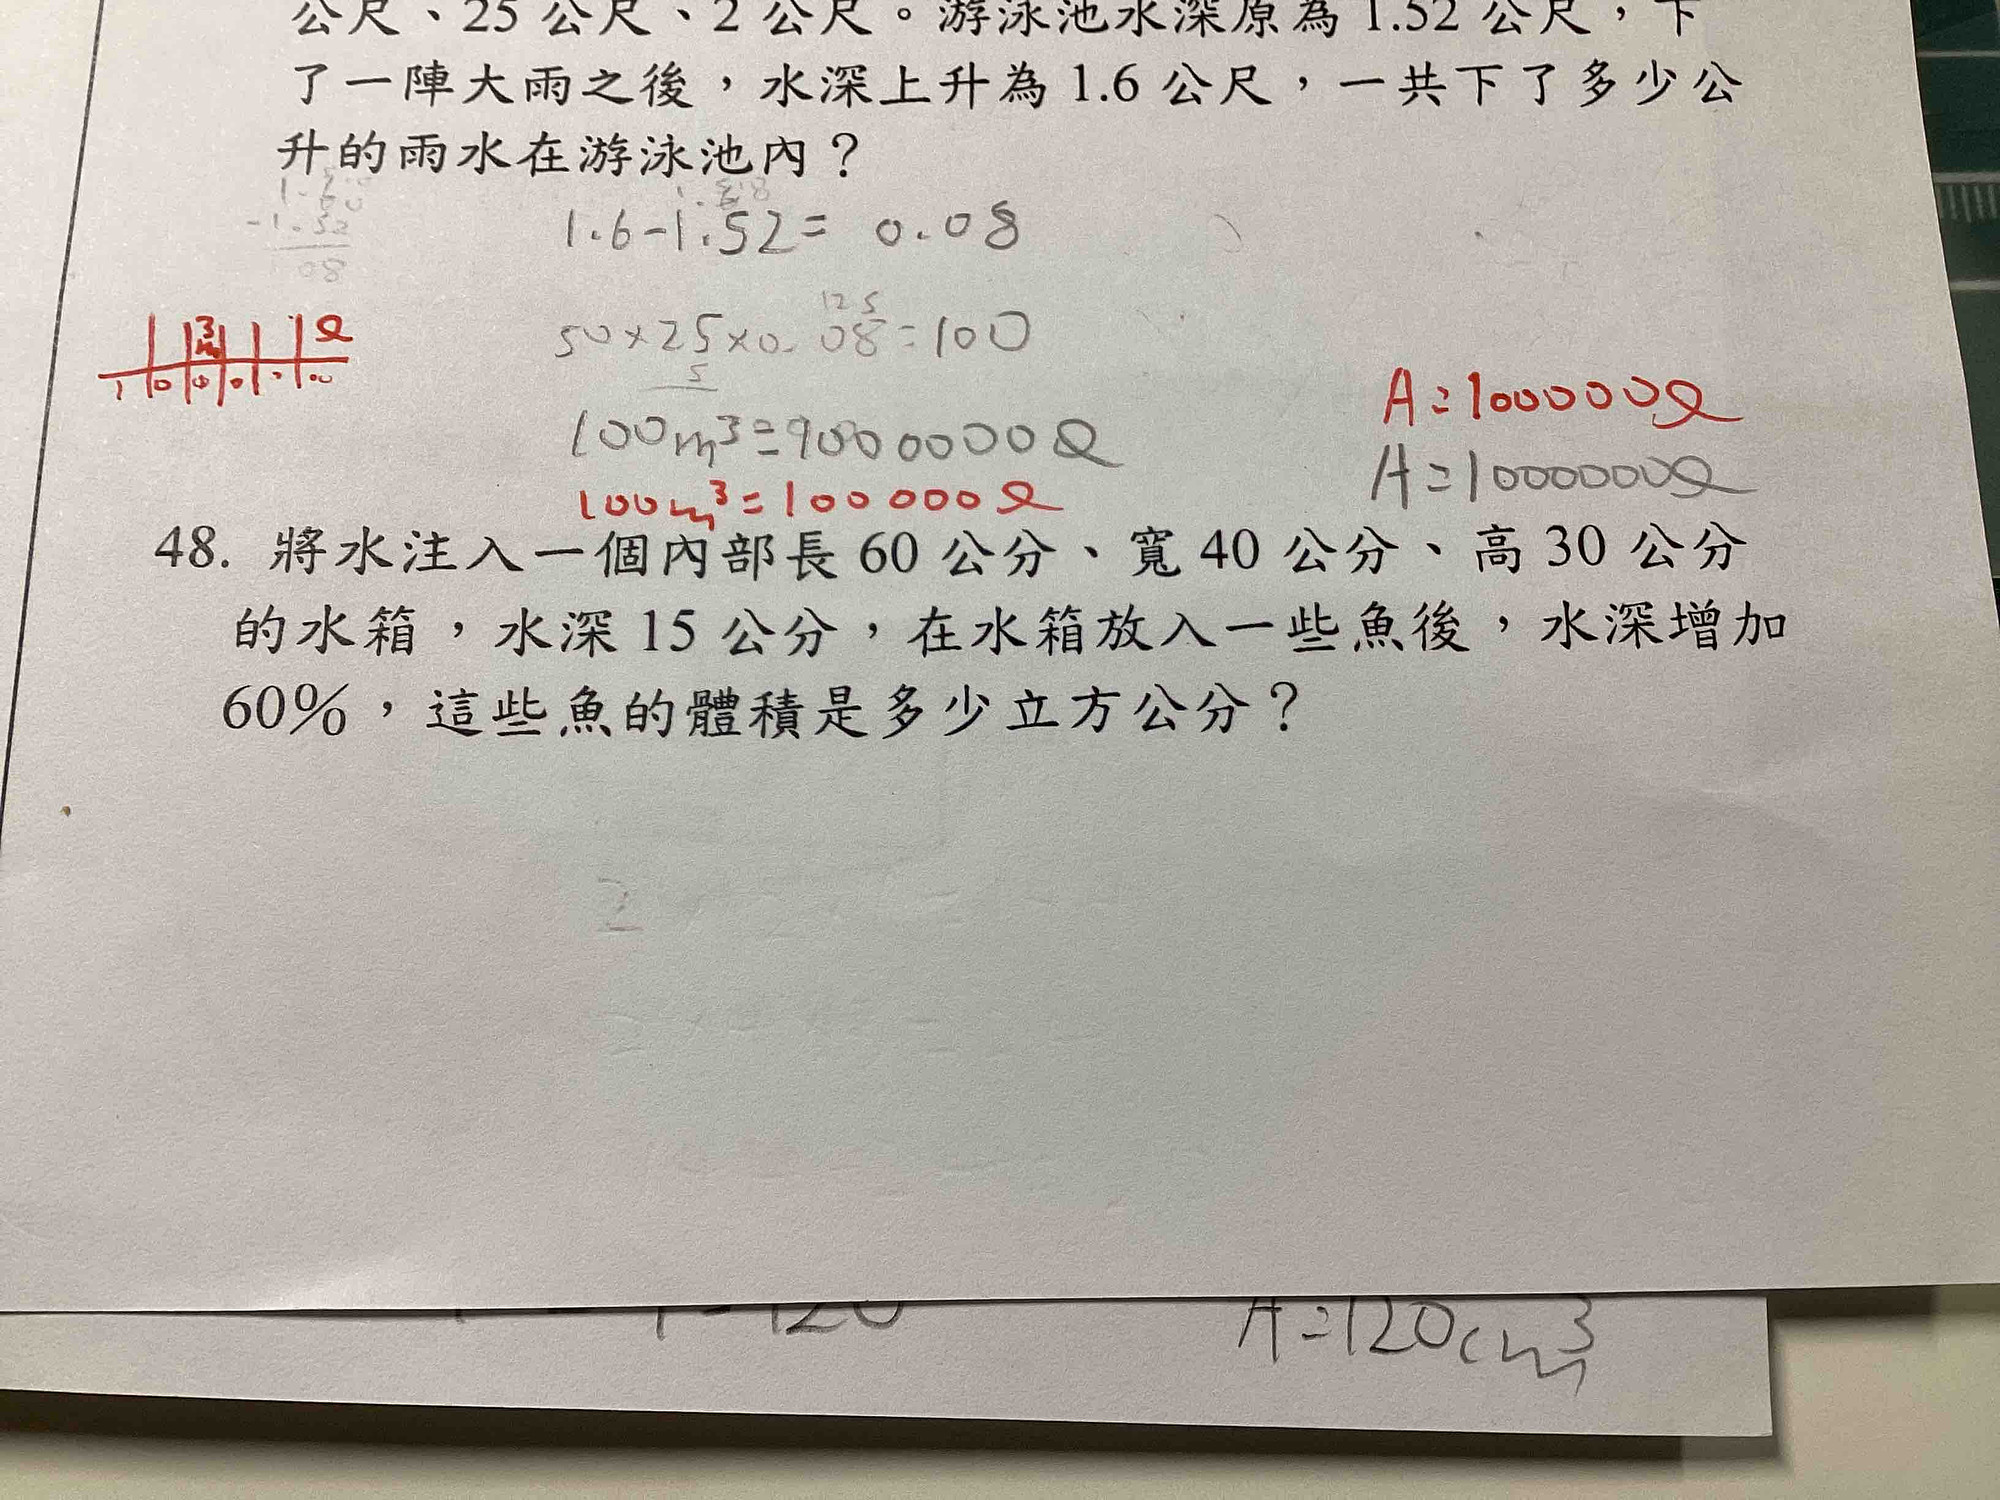 公尺、25 公尺、2 公尺。游泳池水深原為 1.52 公尺，下
了一陣大雨之後，水深上升為 1.6 公尺，一共下了多少公
升的雨水在游泳池內？
-1.52
08
1.6-1.52=0.08
125
50×25×0.08=100
5
100m³=9000000ℓ
100m³=100000ℓ
A=100000ℓ
A=1000000ℓ
48. 將水注入一個內部長 60 公分、寬 40 公分、高 30 公分
的水箱，水深 15 公分，在水箱放入一些魚後，水深增加
60%，這些魚的體積是多少立方公分？
=120
A=120cm³